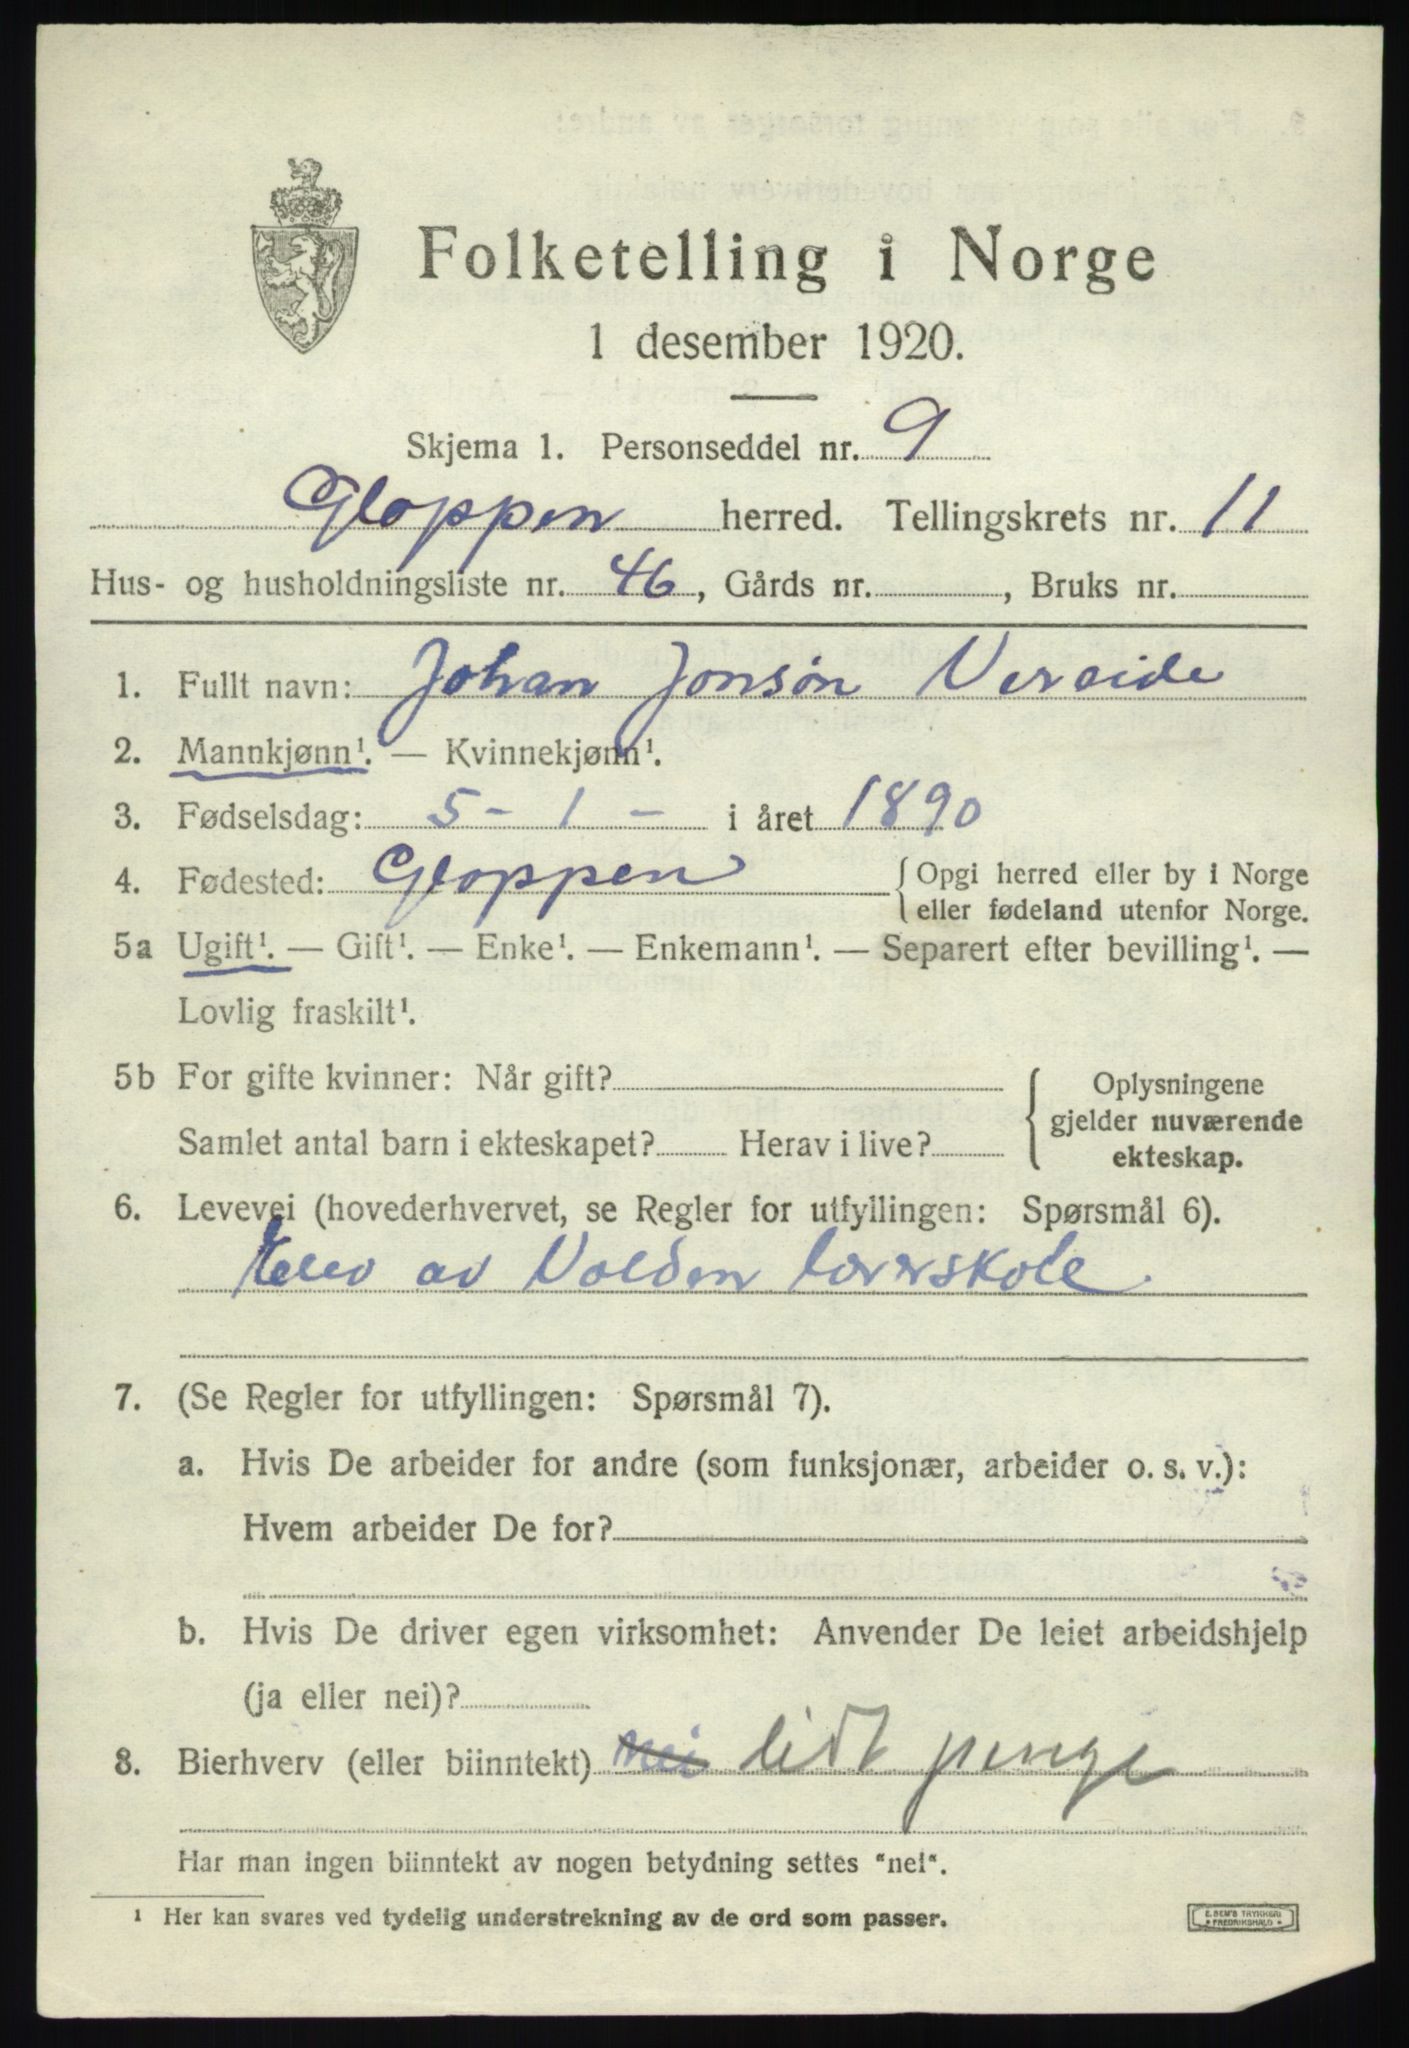 Folketelling i Norge
1 desember 1920.
Skjema 1. Personseddel nr. 9
Gloppen herred. Tellingskrets nr. 11
Hus- og husholdningsliste nr. 46, Gårds nr. , Bruks nr.
1. Fullt navn: Johan Jonsøn Vereide
2. Mannkjønn¹. — Kvinnekjønn¹.
3. Fødselsdag: 5 - 1 - i året 1890
4. Fødested: Gloppen { Opgi herred eller by i Norge
eller fødeland utenfor Norge.
5a Ugift¹. — Gift¹. — Enke¹. — Enkemann¹. — Separert efter bevilling¹. —
Lovlig fraskilt¹.
5b For gifte kvinner: Når gift? { Oplysningene
gjelder nuværende
Samlet antal barn i ekteskapet? Herav i live?
ekteskap.
6. Levevei (hovederhvervet, se Regler for utfyllingen: Spørsmål 6).
Elev av Volden lærerskole
7. (Se Regler for utfyllingen: Spørsmål 7).
a. Hvis De arbeider for andre (som funksjonær, arbeider o. s. v.):
Hvem arbeider De for?
b. Hvis De driver egen virksomhet: Anvender De leiet arbeidshjelp
(ja eller nei)?
8. Bierhverv (eller biinntekt) nei lidt penge
Har man ingen biinntekt av nogen betydning settes "nei".
¹ Her kan svares ved tydelig understrekning av de ord som passer.
E. SEM'S TRYKKERI
• FREDRIKSHALD •